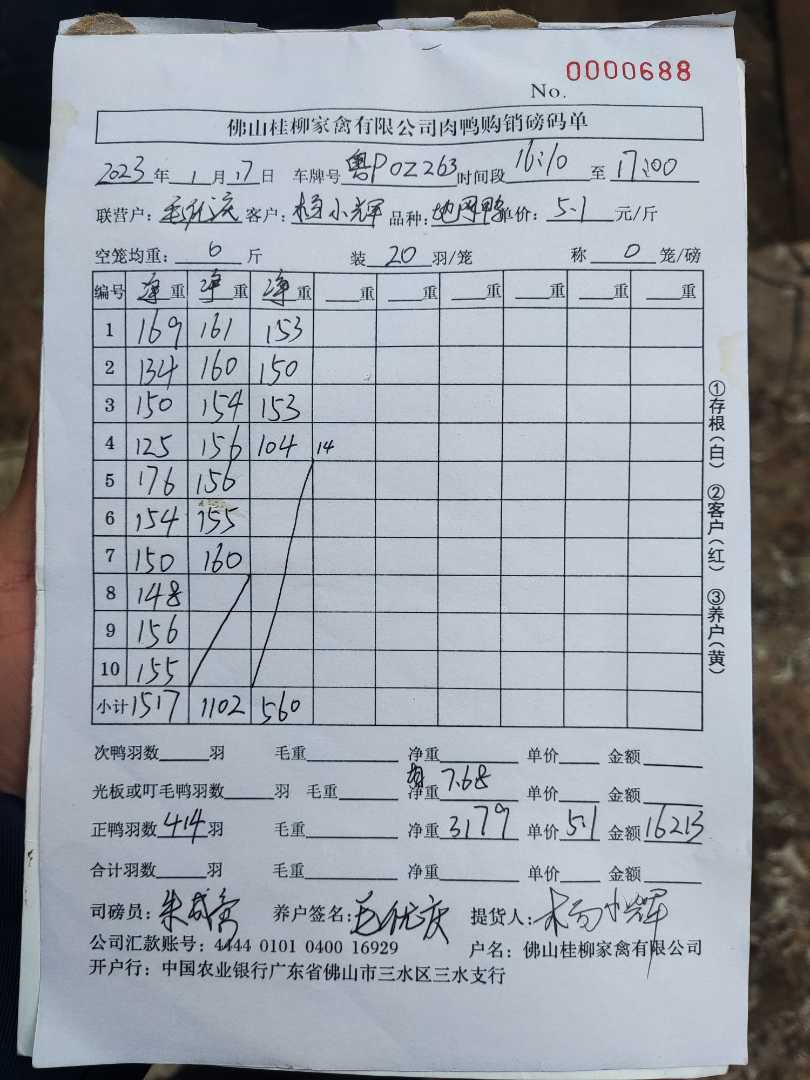 No. 0000688
佛山桂柳家禽有限公司肉鸭购销磅码单
2023年 1月17日 车牌号 粤POZ263 时间段 16:10 至 17:00
联营户: 毛优庆 客户: 杨小辉 品种: 地网鸭 单价: 5.1 元/斤
空笼均重: 6 斤 装 20 羽/笼 称 0 笼/磅
编号 净重 净重 净重 重 重 重 重 重 重
1 169 161 153
2 134 160 150
3 150 154 153
4 125 156 104 14
5 176 156
6 154 155
7 150 160
8 148
9 156
10 155
小计 1517 1102 560
①存根(白) ②客户(红) ③养户(黄)
次鸭羽数 羽 毛重 净重 单价 金额
光板或叮毛鸭羽数 羽 毛重 净重 7.68 单价 金额
正鸭羽数 414 羽 毛重 净重 3179 单价 5.1 金额 16213
合计羽数 羽 毛重 净重 单价 金额
司磅员: 朱 养户签名: 毛优庆 提货人: 杨小辉
公司汇款账号: 4444 0101 0400 16929 户名: 佛山桂柳家禽有限公司
开户行: 中国农业银行广东省佛山市三水区三水支行